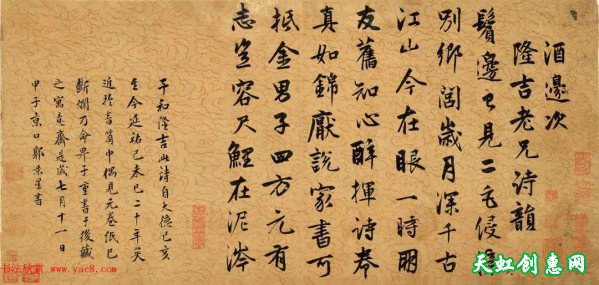 酒邊次
隆吉老兄詩韻
鬢邊見二毛侵離
別鄉閭歲月深千古
江山今在眼一時朋
友舊知心醉揮詩卷
真如錦厭說家書可
抵金男子四方元有
志豈容尺鯉在泥涔
予和隆吉此詩自大德己亥
至今延祐己未已二十年矣
近於書笥中偶見元卷紙已
斷爛乃命界子重書于後藏
之寫意齋是歲七月十一日
甲子京口郭景星書
书法欣赏
www.yac8.com
天虹创惠网